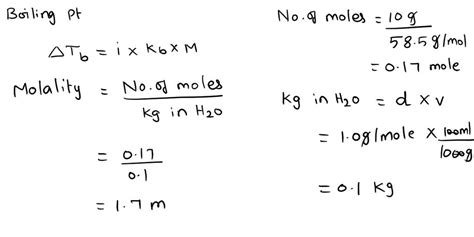 Boiling Pt
ΔTb = i x Kb x M
Molality = No. of moles / Kg in H2O
= 0.17 / 0.1
= 1.7 m
No. of moles = 10 g / 58.5 g/mol
= 0.17 mole
Kg in H2O = d x v
= 1.0 g/mole x 100ml / 1000g
= 0.1 Kg